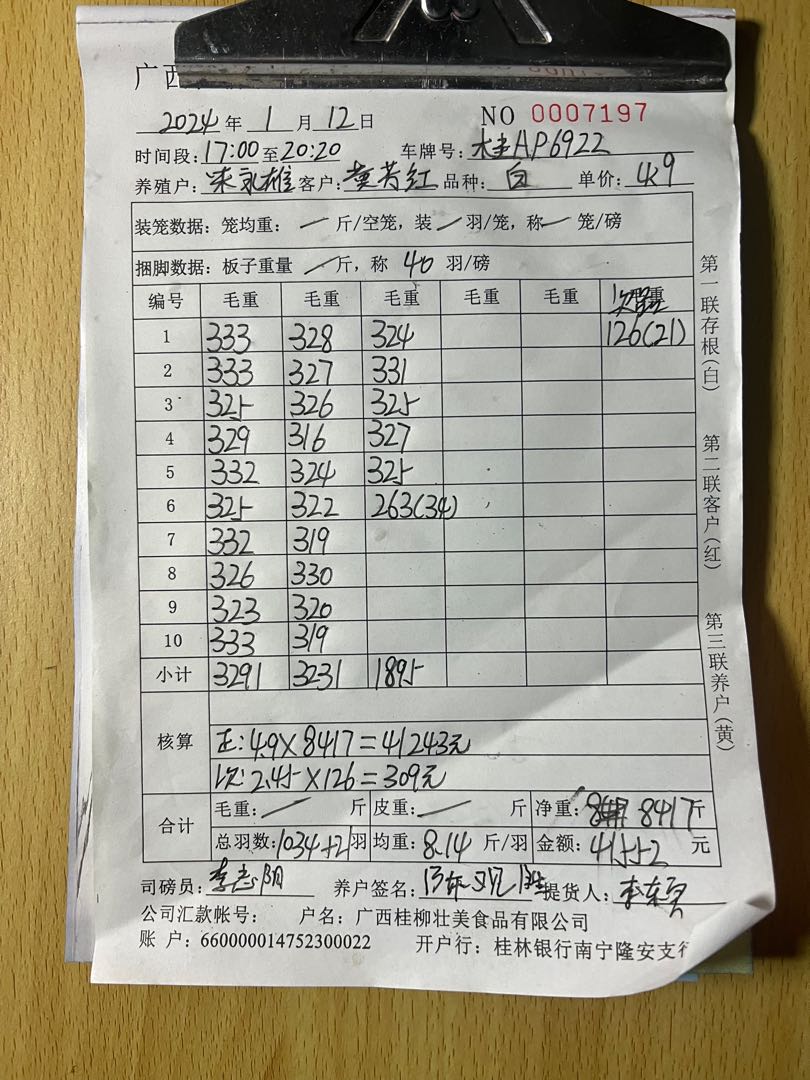 广西
2024年 1月12日 NO 0007197
时间段:17:00至20:20 车牌号:桂AP6922
养殖户: 客户:黄芳红 品种:白 单价:4.9
装笼数据:笼均重: / 斤/空笼,装 / 羽/笼,称 / 笼/磅
捆脚数据:板子重量 / 斤,称 40 羽/磅
编号 毛重 毛重 毛重 毛重 毛重
1 333 328 324 126(21)
2 333 327 331
3 325 326 325
4 329 316 327
5 332 324 325
6 325 322 263(34)
7 332 319
8 326 330
9 323 320
10 333 319
小计 3291 3231 1895
核算
正:4.9×8417=41243元
次:2.45×126=309元
合计 毛重: / 斤 皮重: / 斤 净重: 8417斤
总羽数:1034+21羽 均重:8.14斤/羽 金额:41552元
司磅员:李志阳 养户签名: 提货人:
公司汇款帐号: 户名:广西桂柳壮美食品有限公司
账 户:660000014752300022 开户行:桂林银行南宁隆安支行
第一联存根(白)
第二联客户(红)
第三联养户(黄)